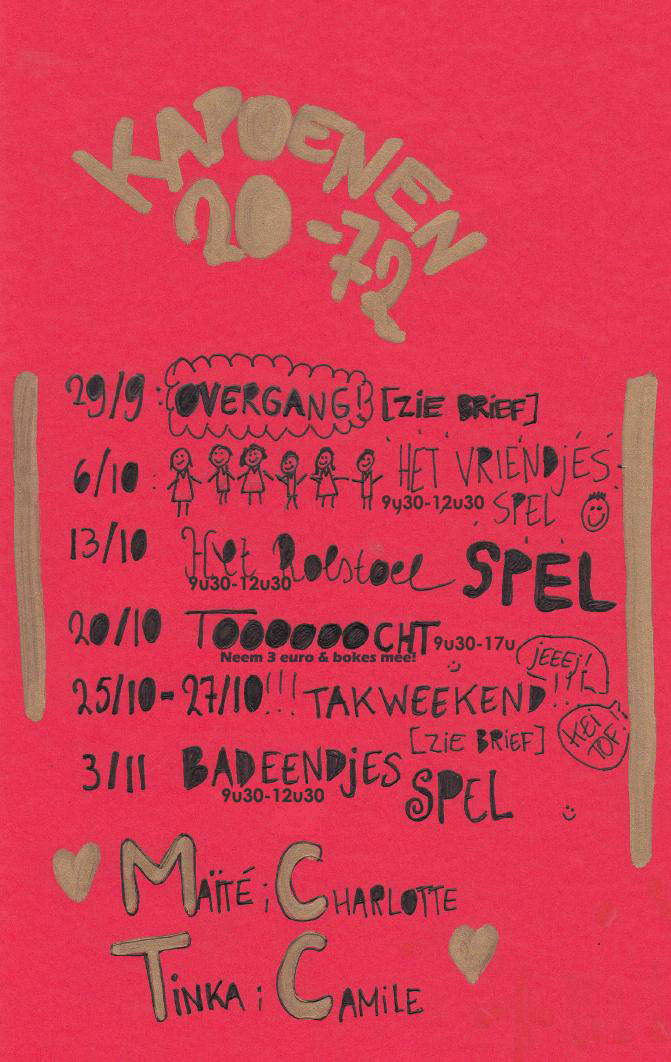 KAPOENEN
20-72
29/9 : OVERGANG! [ZIE BRIEF]
6/10 : HET VRIENDJES
9u30-12u30 SPEL
13/10 Het Rolstoel SPEL
9u30-12u30
20/10 TOOOOOOCHT 9u30-17u
Neem 3 euro & bokes mee!
jEEEj!
25/10-27/10!!! TAKWEEKEND!!!
[ZIE BRIEF]
KEI
TOF!
3/11 BADEENDjES
9u30-12u30 SPEL
MAÏTÉ ; CHARLOTTE
TiNKA ; CAMiLE